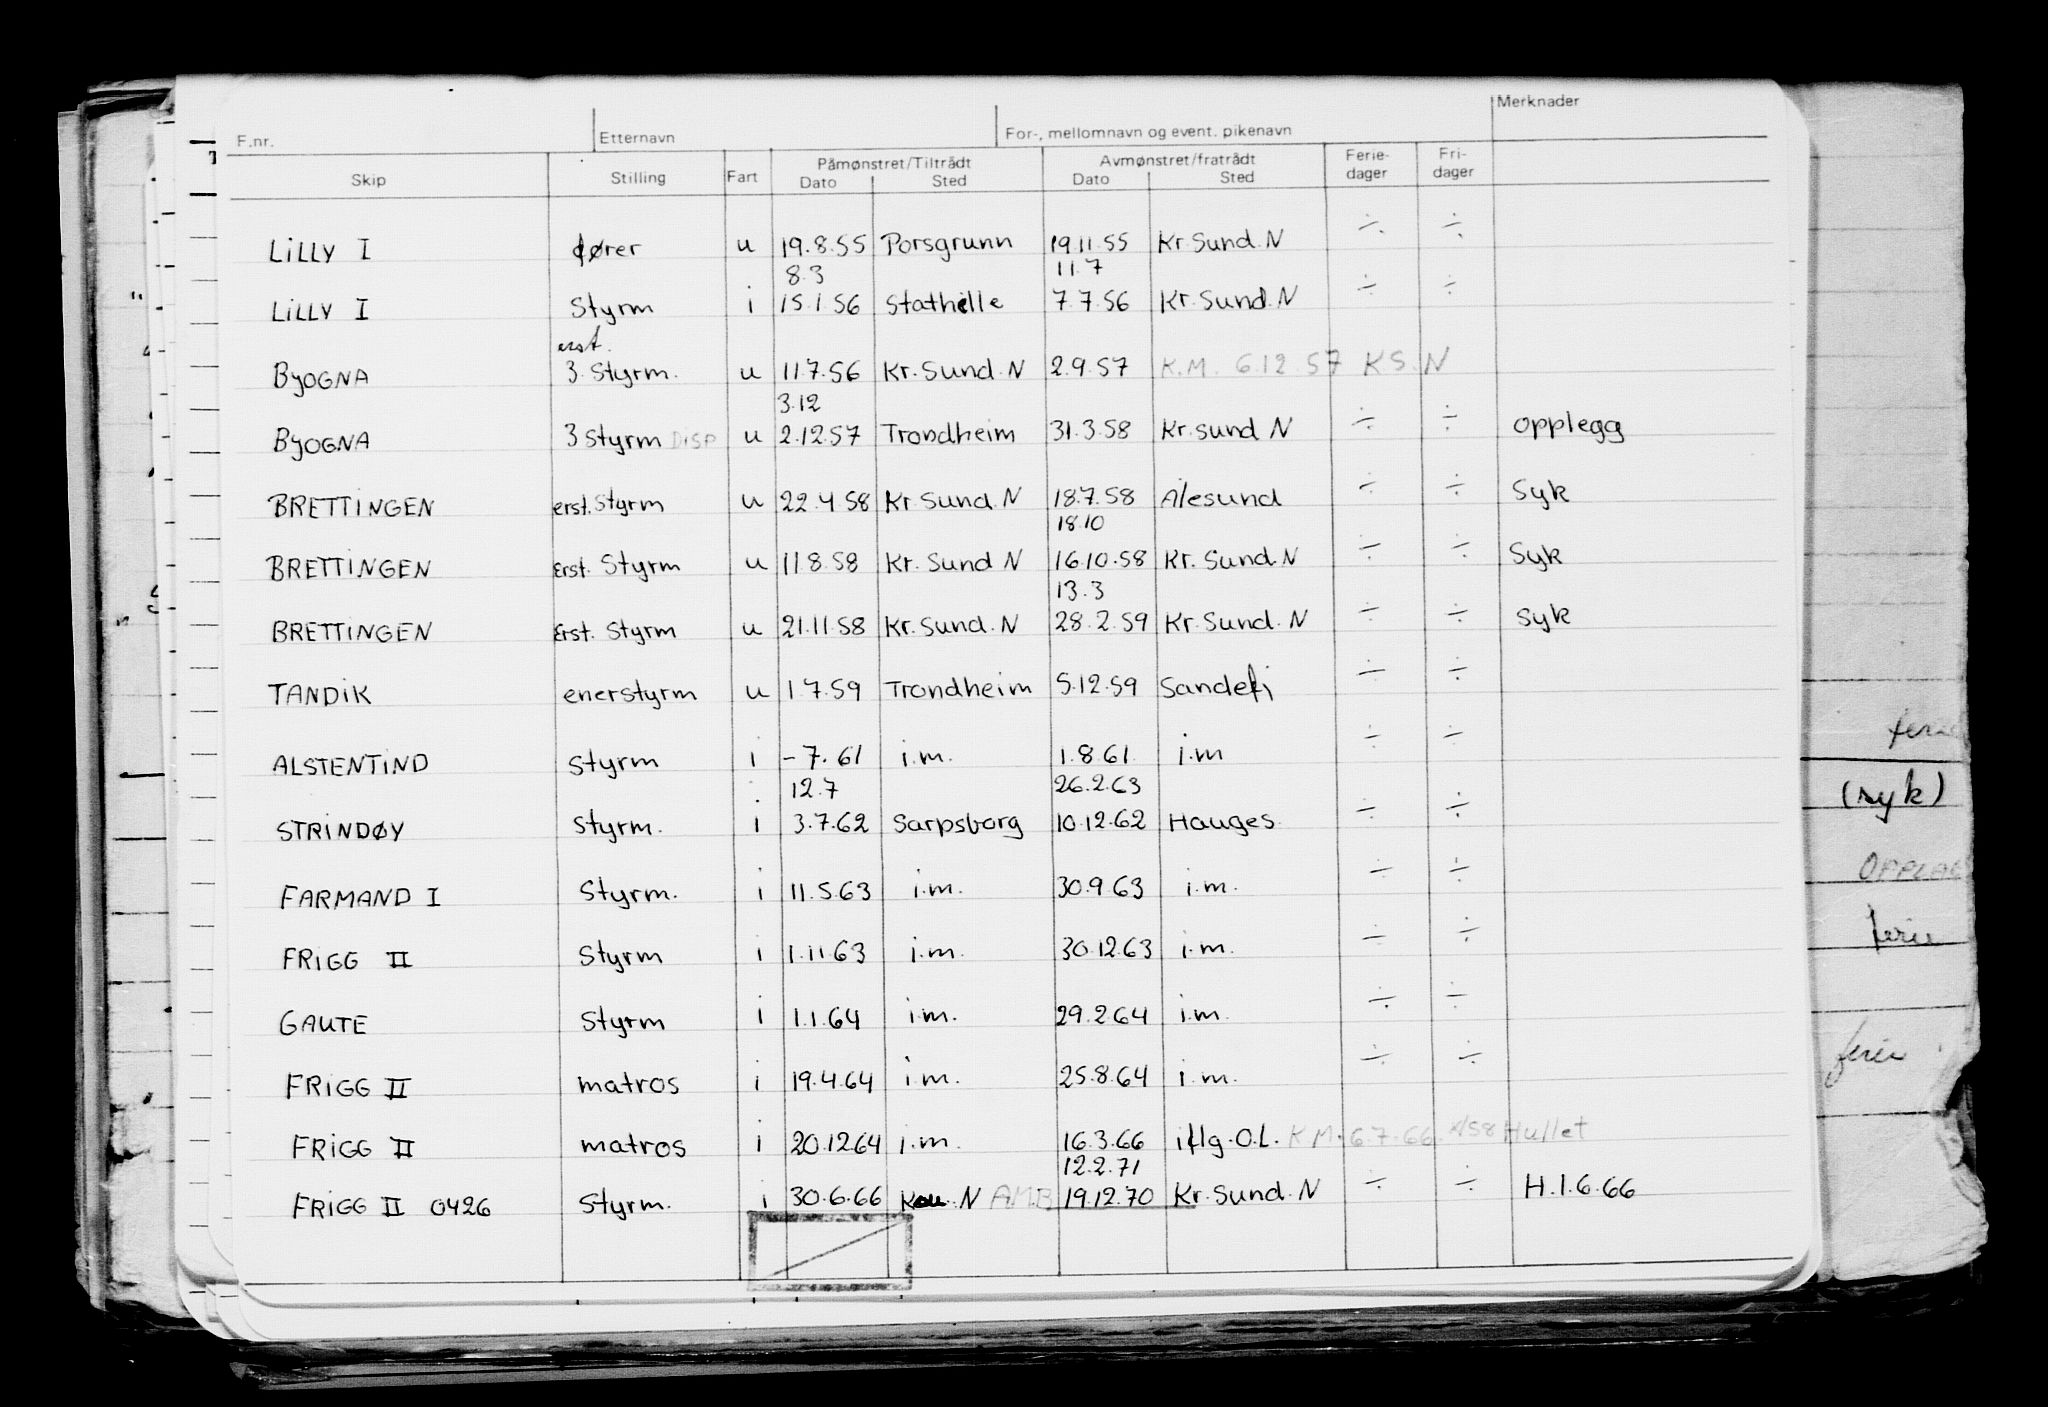 F.nr. Etternavn For-, mellomnavn og event. pikenavn Merknader
Skip Stilling Fart Påmønstret/Tiltrådt Dato Sted Avmønstret/fratrådt Dato Sted Ferie-dager Fri-dager
LiLLY I fører u 19.8.55 Porsgrunn 19.11.55 Kr.Sund.N ÷ ÷
8.3 11.7
LiLLY I Styrm i 15.1.56 Stathelle 7.7.56 Kr.Sund.N ÷ ÷
erst.
ByOGNA 3.Styrm. u 11.7.56 Kr.Sund.N 2.9.57 K.M. 6.12.57 KS.N
3.12
ByOGNA 3 Styrm DISP u 2.12.57 Trondheim 31.3.58 Kr.sund N ÷ ÷ opplegg
BRETTiNGEN erst.Styrm u 22.4.58 Kr.Sund.N 18.7.58 Ålesund ÷ ÷ Syk
18.10
BRETTiNGEN Erst. Styrm u 11.8.58 Kr.Sund N 16.10.58 Kr.Sund.N ÷ ÷ Syk
13.3
BRETTiNGEN Erst. Styrm u 21.11.58 Kr.Sund.N 28.2.59 Kr.Sund.N ÷ ÷ Syk
TANDiK enerstyrm u 1.7.59 Trondheim 5.12.59 Sandefj ÷ ÷
ALSTENTiND Styrm i -7.61 i.m. 1.8.61. i.m ÷ ÷
12.7 26.2.63
STRiNDØY Styrm. i 3.7.62 Sarpsborg 10.12.62 Hauges. ÷ ÷
FARMAND I Styrm. i 11.5.63 i.m. 30.9.63 i.m. ÷ ÷
FRiGG II Styrm i 1.11.63 i.m. 30.12.63 i.m. ÷ ÷
GAUTE Styrm i 1.1.64 i.m. 29.2.64 i.m. ÷ ÷
FRiGG II matros i 19.4.64 i.m. 25.8.64 i.m. ÷ ÷
FRiGG II matros i 20.12.64 i.m. 16.3.66 iflg.O.L. K.M. 6.7.66 Hullet
12.2.71
FRiGG II 0426 Styrm. i 30.6.66 N AMB 19.12.70 Kr.Sund.N ÷ ÷ H.1.6.66
ferie
(syk)
OPPLAG
ferie
ferie